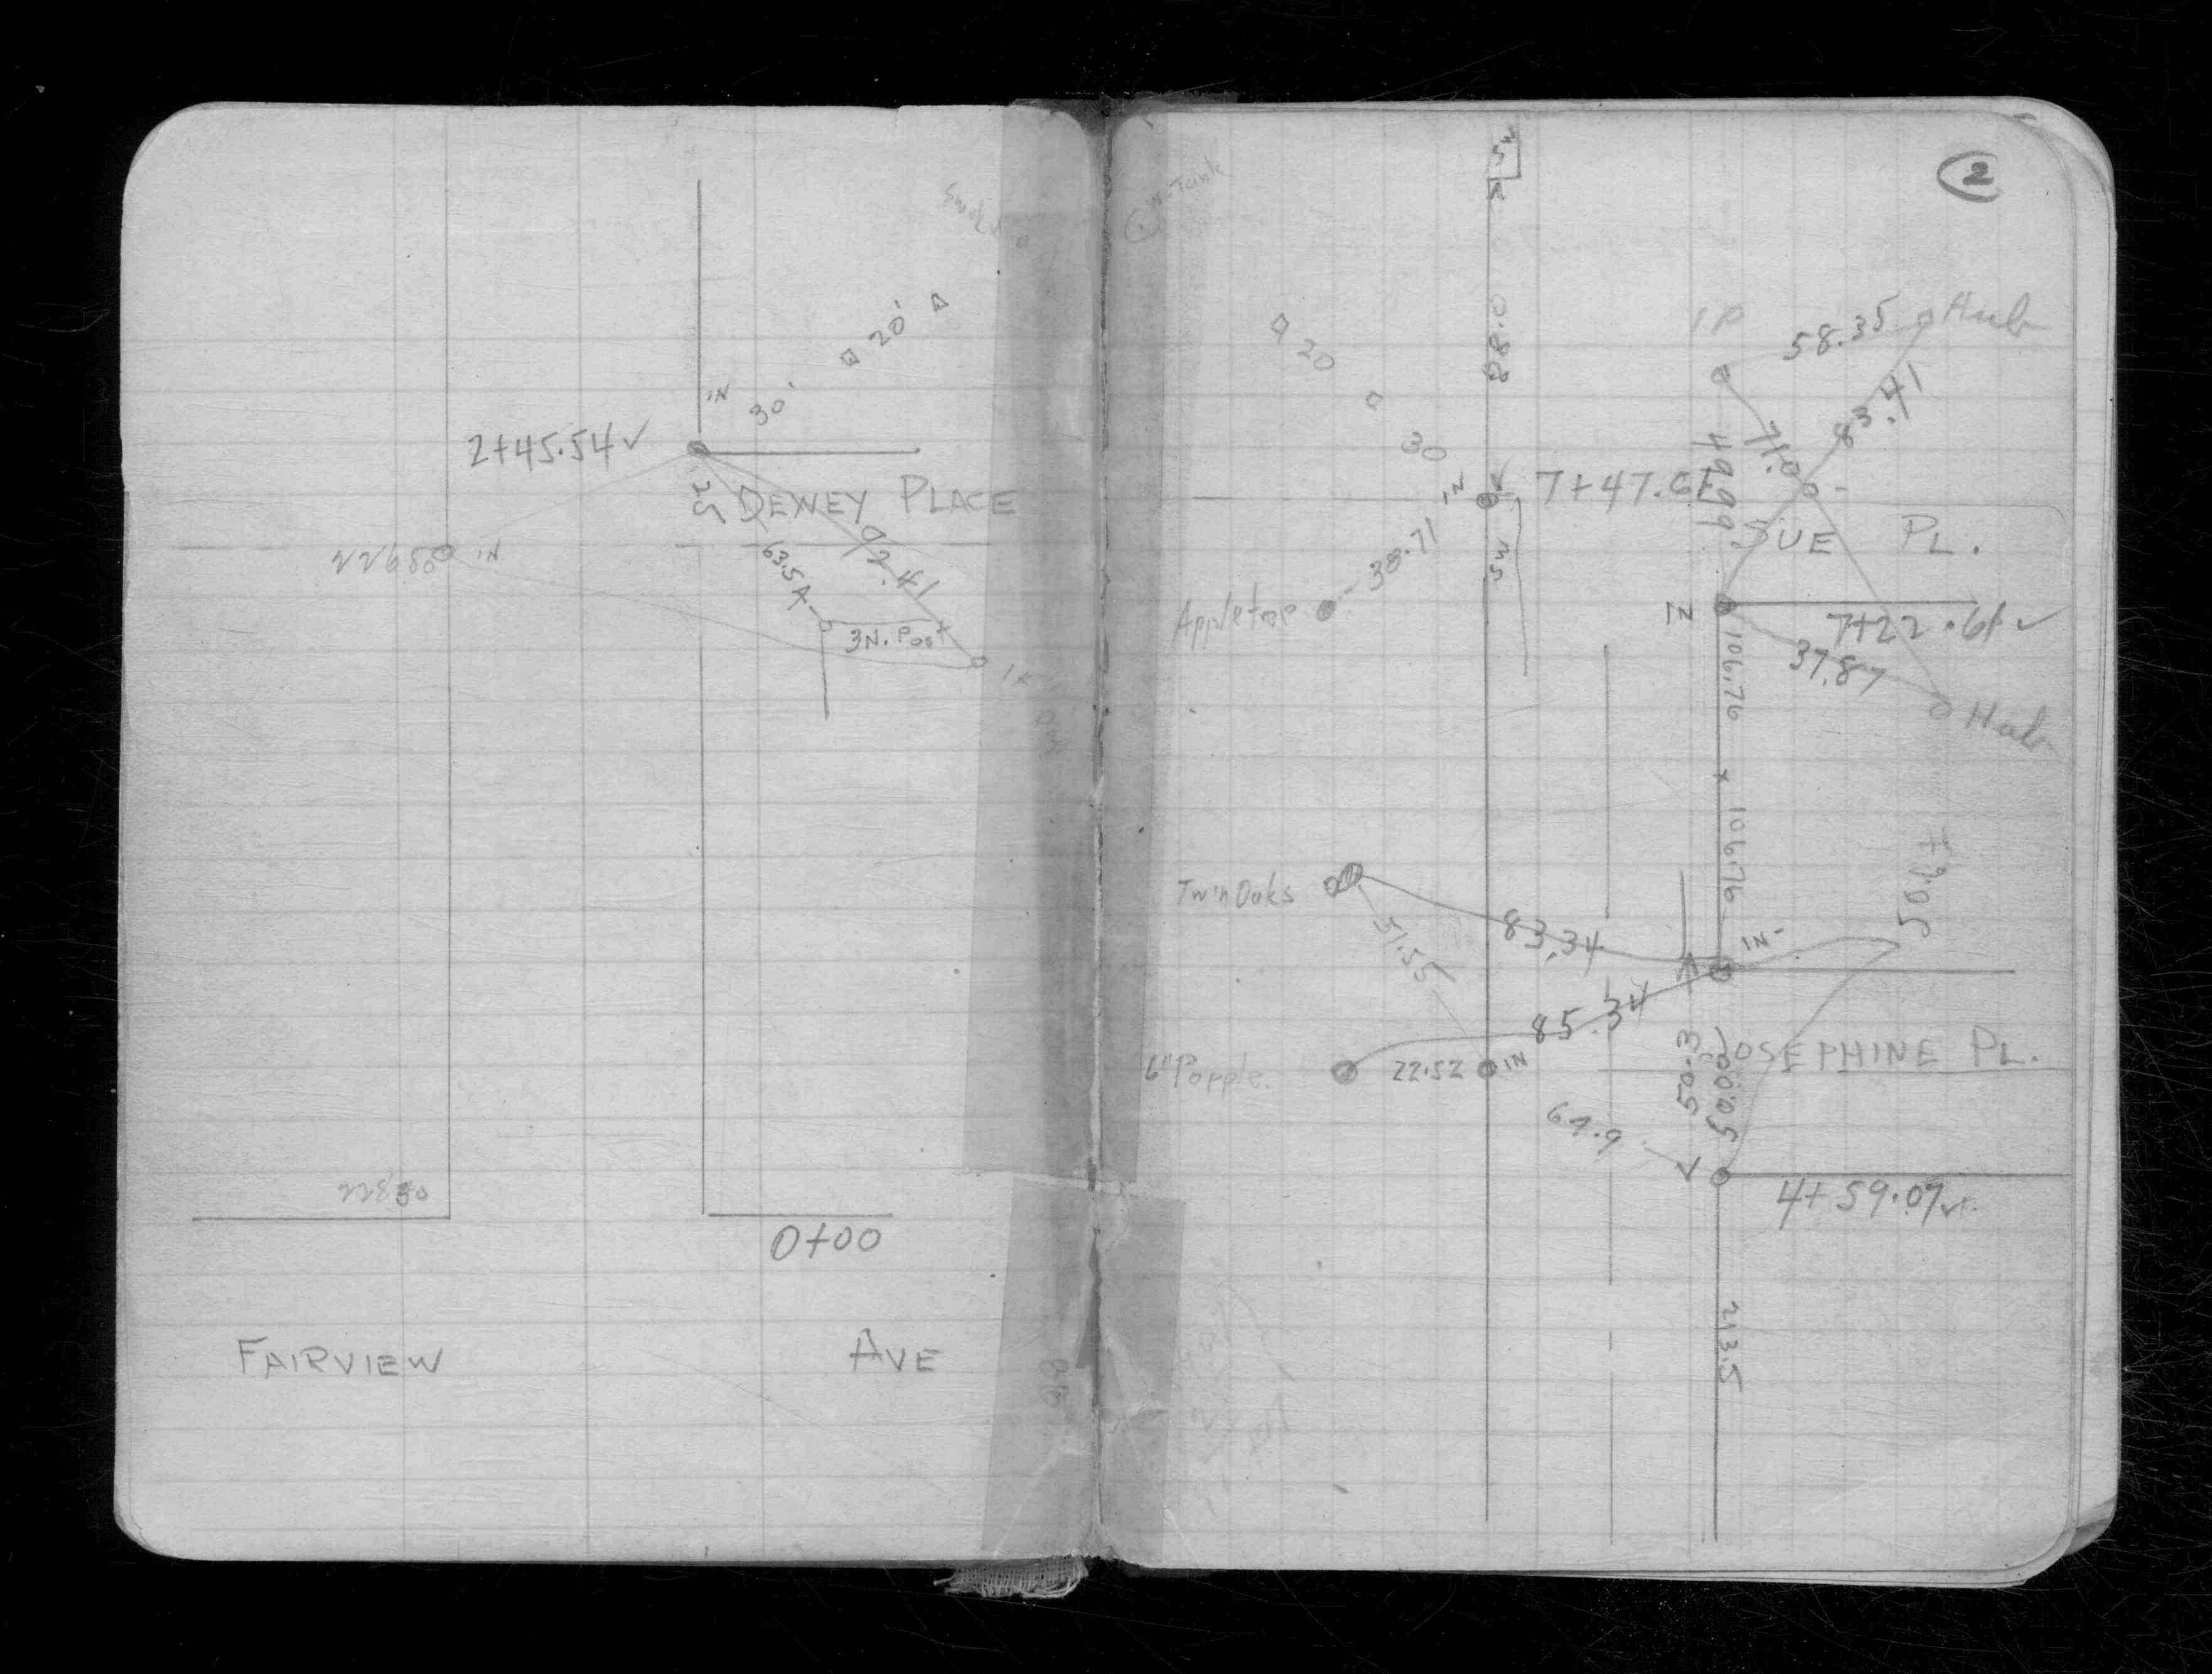 2+45.54 ✓
IN
30'
20'
25
DEWEY PLACE
63.5
92.41
3N. Post
22680
IN
22830
0+00
FAIRVIEW AVE
2
W. Tank
88.0
IP
58.35
Hub
83.41
71.0
49.99
20
30
IN
7+47.61
SUE PL.
38.71
SW
Appletree
IN
7+22.61 ✓
37.87
Hub
106.76
106.76
Twin Oaks
83.34
51.55
IN
50.17
85.34
6" Popple
22.52
IN
50.3
50.00
JOSEPHINE PL.
64.9
4+59.07 ✓
213.5